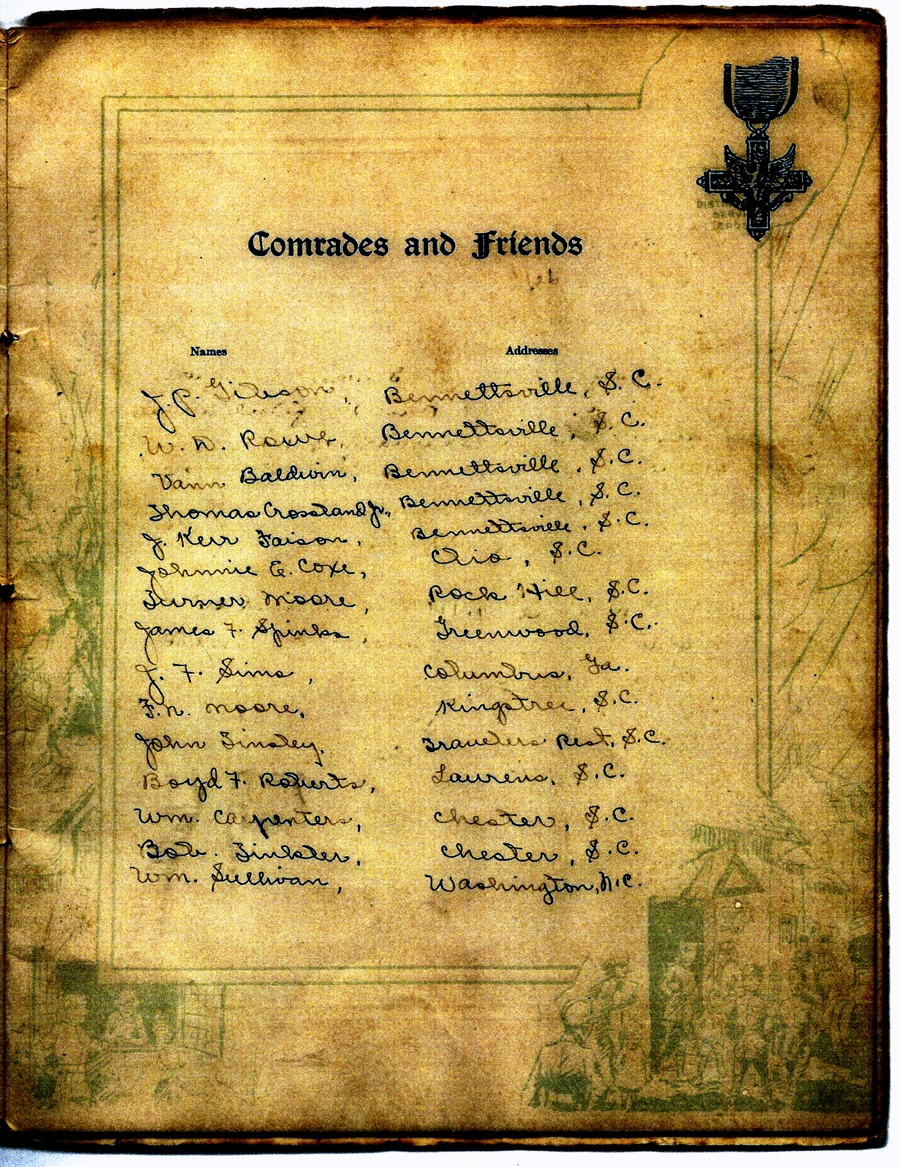 Comrades and Friends
Names Addresses
J. P. Gibson, Bennettsville, S. C.
W. D. Rowe, Bennettsville, S. C.
Vann Baldwin, Bennettsville, S. C.
Thomas Crossland Jr., Bennettsville, S. C.
J. Kerr Faison, Bennettsville, S. C.
Johnnie E. Coxe, Clio, S. C.
Turner Moore, Rock Hill, S. C.
James F. Spinks, Greenwood, S. C.
J. F. Sims, Columbus, Ga.
F. N. Moore, Kingstree, S. C.
John Tinsley, Travelers Rest, S. C.
Boyd F. Roberts, Laurens, S. C.
Wm. Carpenters, Chester, S. C.
Bob. Tinkler, Chester, S. C.
Wm. Sullivan, Washington, N. C.